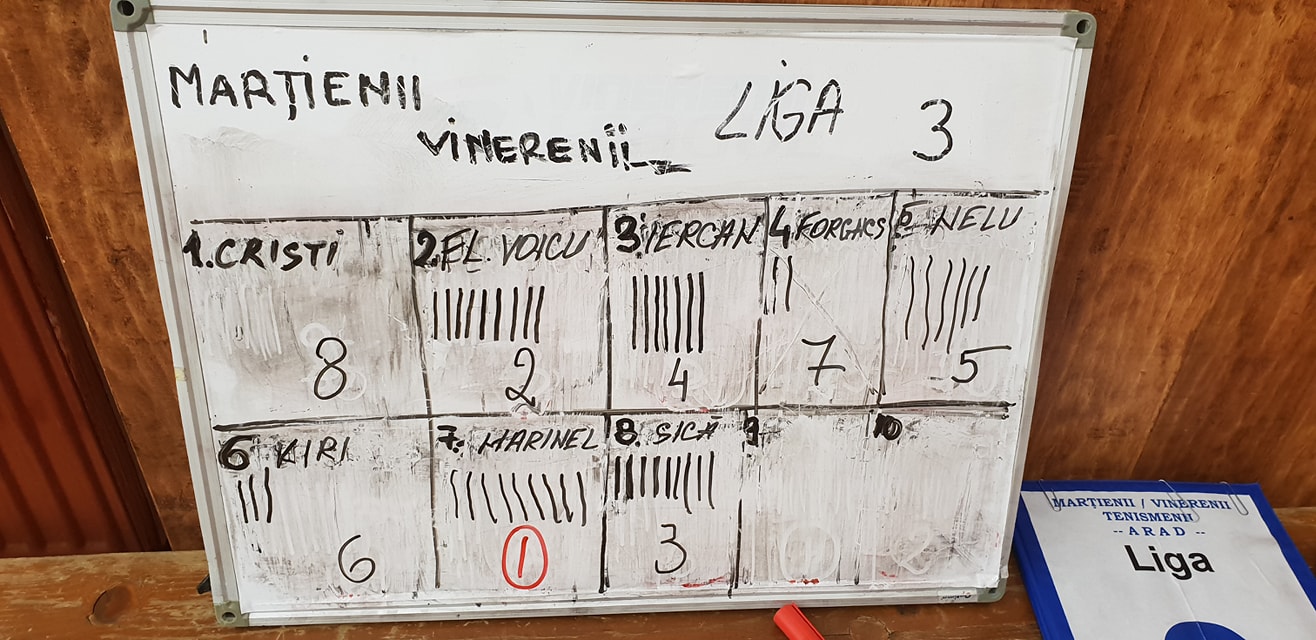 MARȚIENII
VINERENII
LIGA 3
1. CRISTI
8
2. FL. VOICU
2
3. IERCAN
4
4. FORGACS
7
5. NELU
5
6. KIRI
6
7. MARINEL
1
8. SICĂ
3
9
10
MARȚIENII / VINERENII
TENISMENII
-- ARAD --
Liga